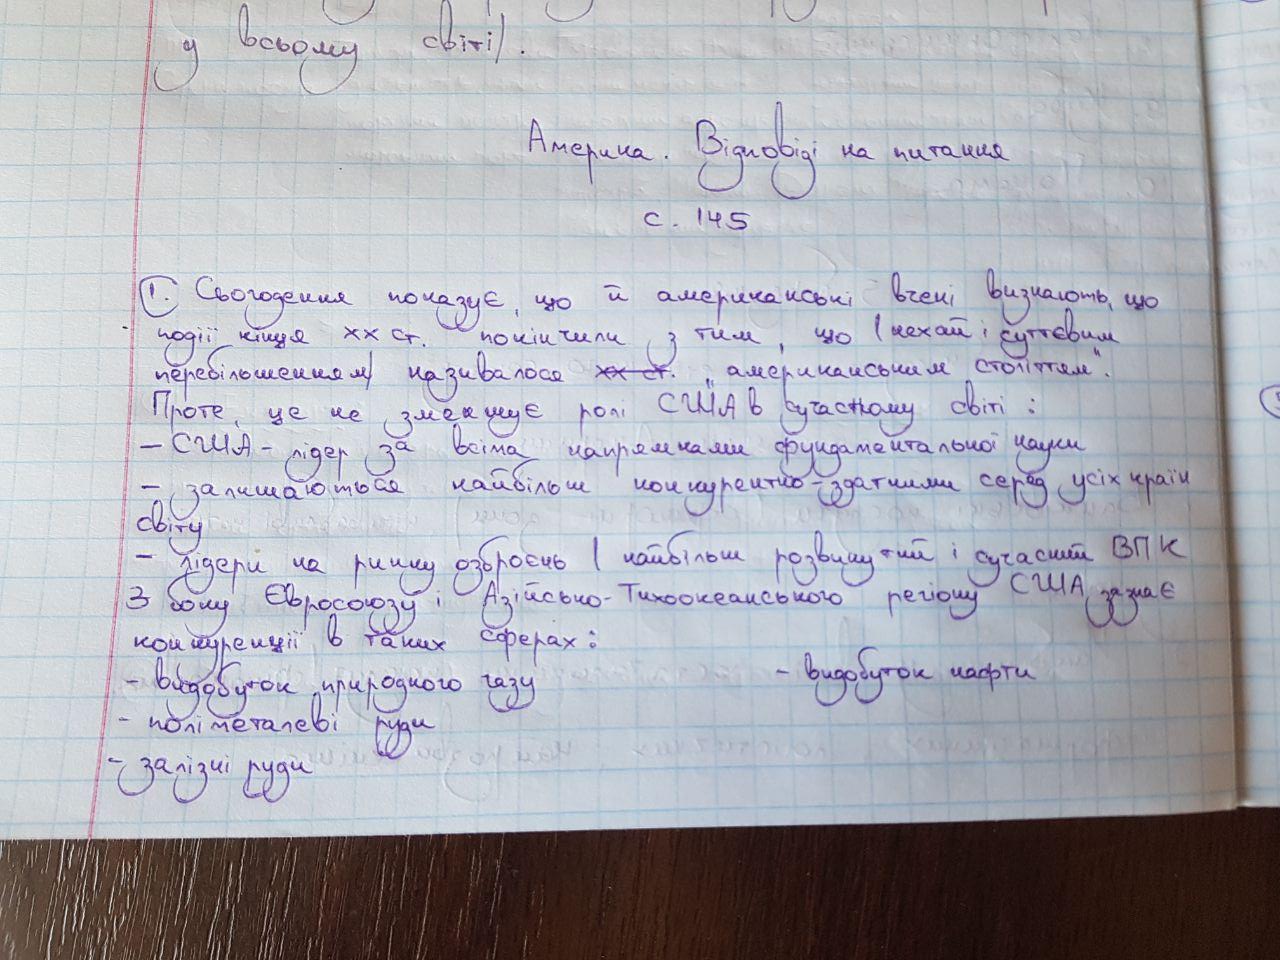 у всьому світі/.
Америка. Відповіді на питання
с. 145
1. Сьогодення показує, що й американські вчені визнають, що
події кінця ХХ ст. покінчили з тим, що /нехай і суттєвим
перебільшенням/ називалося ХХ ст. „американським століттям".
Проте, це не зменшує ролі США в сучасному світі:
- США - лідер за всіма напрямками фундаментальної науки
- залишаються найбільш конкурентно-здатними серед усіх країн
світу
- лідери на ринку озброєнь / найбільш розвинутий і сучасний ВПК
З боку Євросоюзу і Азійсько-Тихоокеанського регіону США зазнає
конкуренції в таких сферах:
- видобуток природного газу - видобуток нафти
- поліметалеві руди
- залізні руди